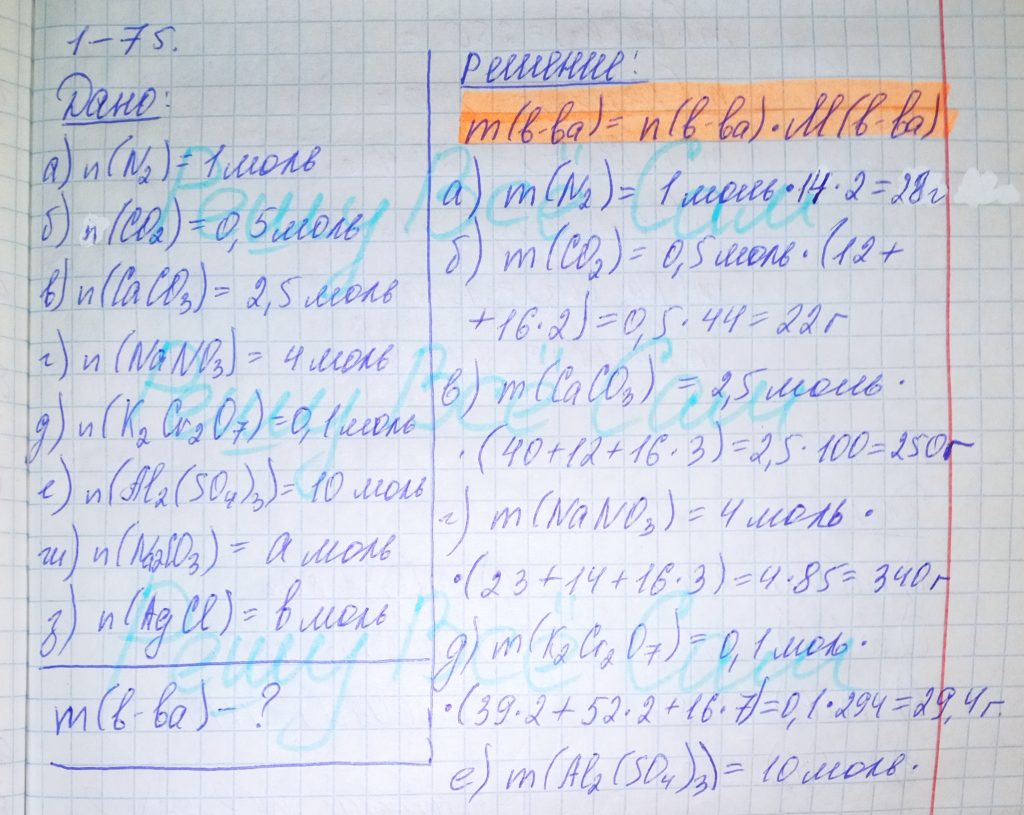 1-75.
Дано:
а) n(N₂) = 1 моль
б) n(CO₂) = 0,5 моль
в) n(CaCO₃) = 2,5 моль
г) n(NaNO₃) = 4 моль
д) n(K₂Cr₂O₇) = 0,1 моль
е) n(Al₂(SO₄)₃) = 10 моль
ж) n(Na₂SO₃) = а моль
з) n(AgCl) = в моль
m(в-ва) - ?
Решение:
m(в-ва) = n(в-ва) · M(в-ва)
а) m(N₂) = 1 моль · 14 · 2 = 28 г
б) m(CO₂) = 0,5 моль · (12 +
+ 16 · 2) = 0,5 · 44 = 22 г
в) m(CaCO₃) = 2,5 моль ·
· (40 + 12 + 16 · 3) = 2,5 · 100 = 250 г
г) m(NaNO₃) = 4 моль ·
· (23 + 14 + 16 · 3) = 4 · 85 = 340 г
д) m(K₂Cr₂O₇) = 0,1 моль ·
· (39 · 2 + 52 · 2 + 16 · 7) = 0,1 · 294 = 29,4 г.
е) m(Al₂(SO₄)₃) = 10 моль ·
Решу Всё Сам
Решу Всё Сам
Решу Всё Сам